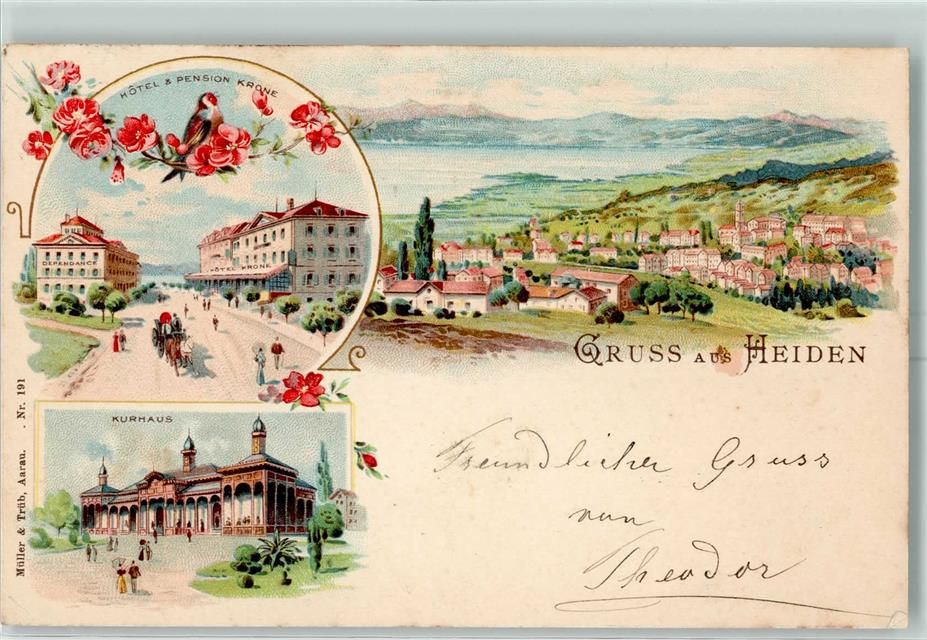 HÔTEL & PENSION KRONE
DEPENDANCE
HÔTEL KRONE
GRUSS AUS HEIDEN
KURHAUS
Freundlicher Gruss
von
Theodor
Müller & Trüb, Aarau. . Nr. 191